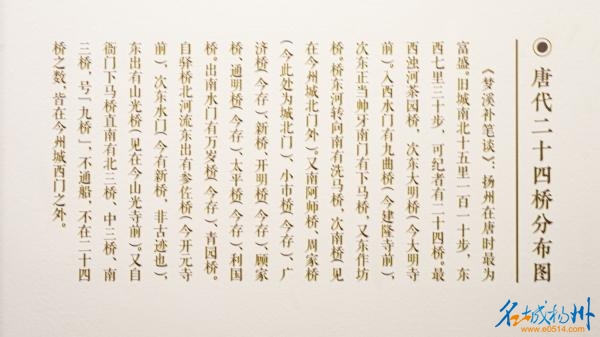 唐代二十四桥分布图
《梦溪补笔谈》：扬州在唐时最为
富盛。旧城南北十五里一百一十步，东
西七里三十步，可纪者有二十四桥。最
西浊河茶园桥，次东大明桥（今大明寺
前）。入西水门有九曲桥（今建隆寺前），
次东正当帅牙南门有下马桥，又东作坊
桥。桥东河转向南有洗马桥，次南桥（见
在今州城北门外）。又南阿师桥、周家桥
（今此处为城北门）、小市桥（今存）、广
济桥（今存）、新桥、开明桥（今存）、顾家
桥、通明桥（今存）、太平桥（今存）、利国
桥。出南水门有万岁桥（今存）、青园桥。
自驿桥北河流东出有参佐桥（今开元寺
前）、次东水门（今有新桥，非古迹也），
东出有山光桥（见在今山光寺前）。又自
衙门下马桥直南有北三桥、中三桥、南
三桥，号「九桥」，不通船，不在二十四
桥之数，皆在今州城西门之外。
名城扬州
www.e0514.com